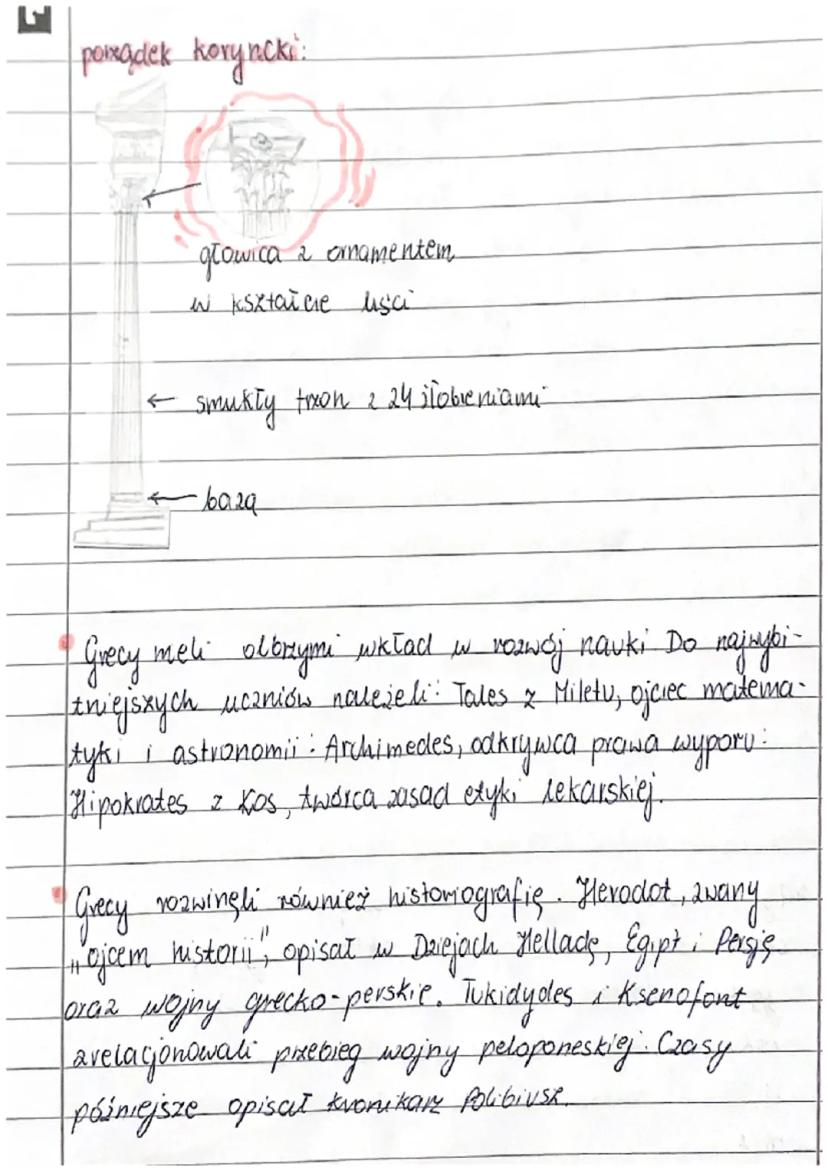 porządek koryncki:
głowica z ornamentem
w kształcie liści
smukły trzon z 24 żłobieniami
bazą
Grecy meli olbrzymi wkład w rozwój nauki Do najwybi-
tniejszych uczniów należeli: Tales z Miletu, ojciec matema-
tyki i astronomii: Archimedes, odkrywca prawa wyporu:
Hipokrates z Kos, twórca zasad etyki lekarskiej.
Grecy rozwinęli również historiografię. Herodot, zwany
"ojcem historii", opisał w Dziejach Helladę, Egipt i Persję
oraz wojny grecko-perskie. Tukidydes i Ksenofont
zrelacjonowali przebieg wojny peloponeskiej. Czasy
późniejsze opisał kronikarz Polibiusz.